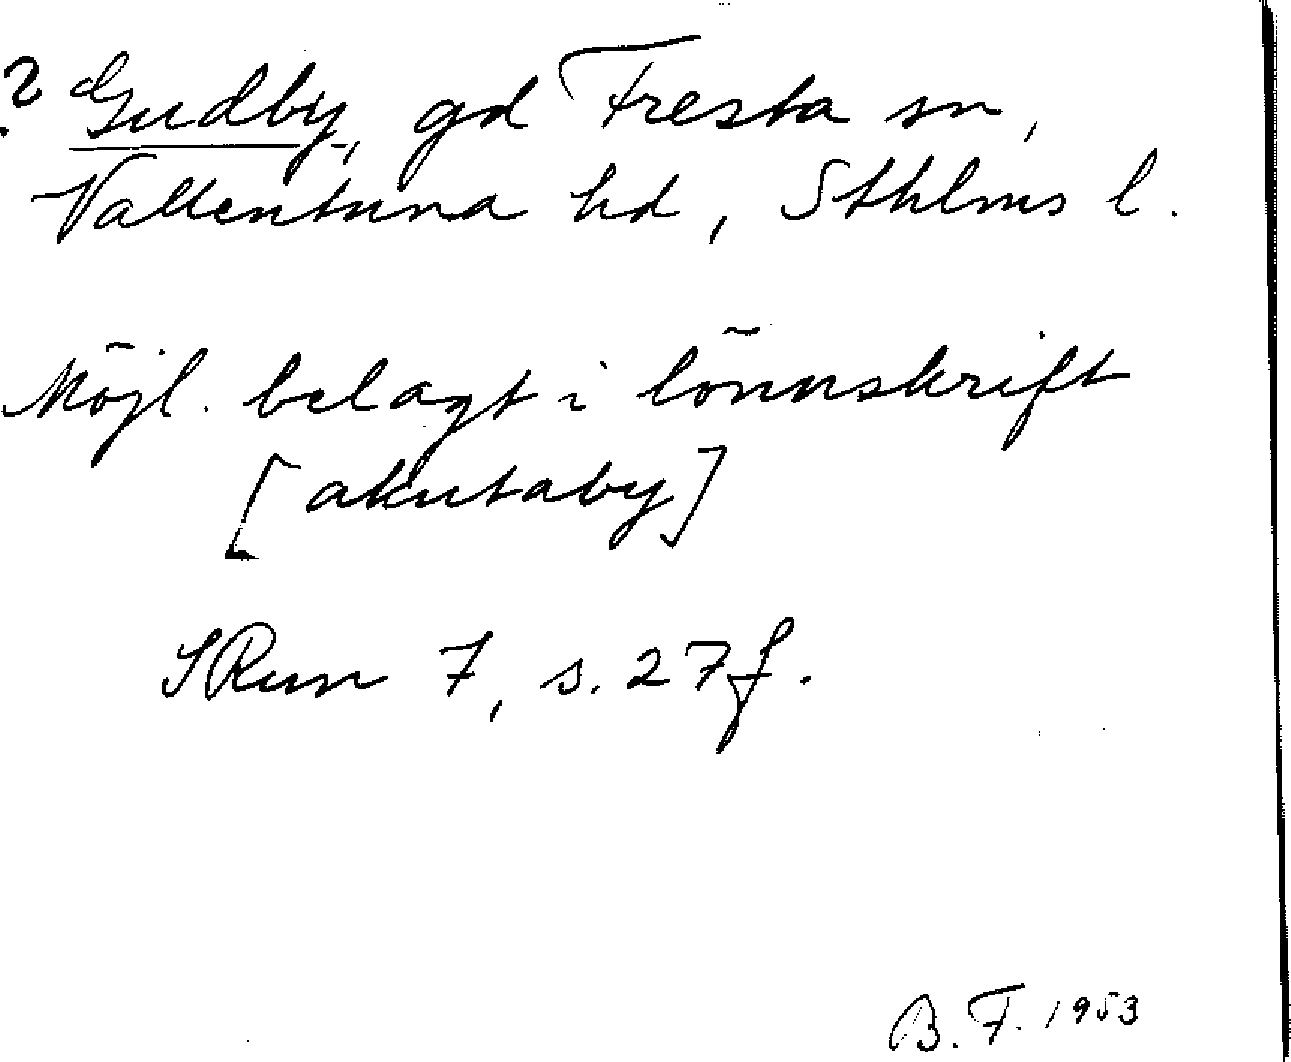 ? Gudby, gd Fresta sn,
Vallentuna hd, Sthlms l.
Möjl. belagt i lönnskrift
[akutaby]
SRun 7, s. 27 f.
B. F. 1953